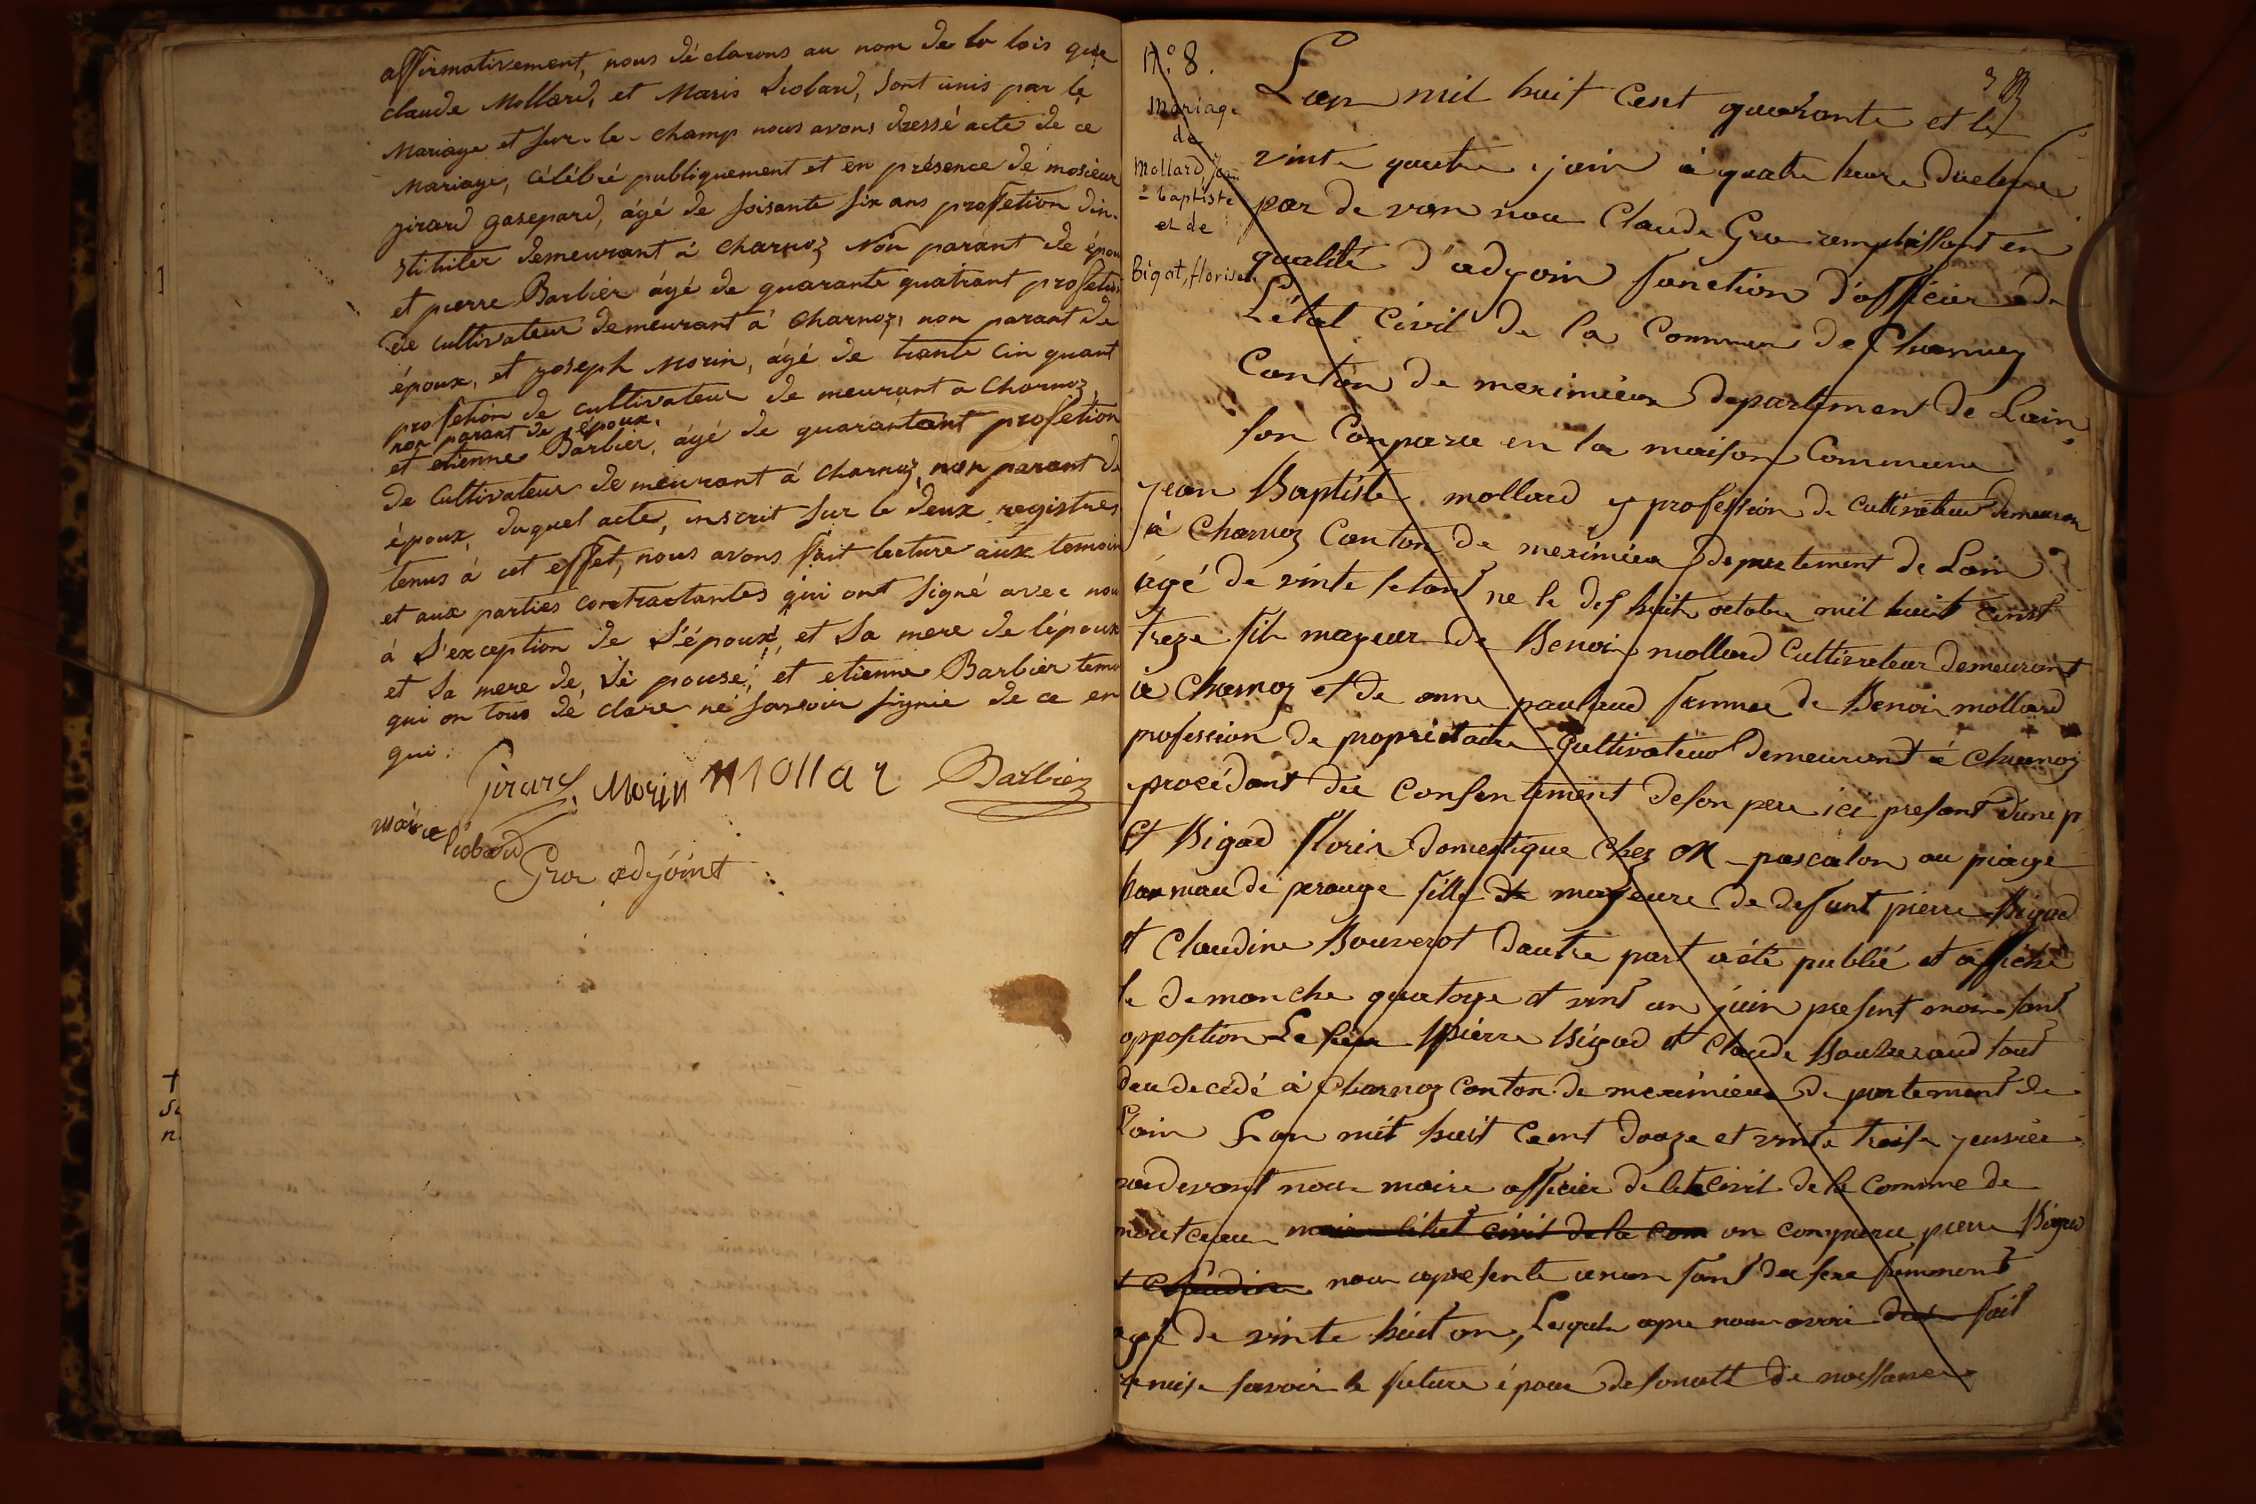 affirmativement, nous déclarons au nom de la lois que
claude Mollard, et Maris Liobard, sont unis par le
Mariage et sur-le-champ nous avons dressé acte de ce
Mariage, célébré publiquement et en présence de mosieur
girard gasepard, âgé de soisante six ans profetion din-
stituter demeurant à charnoz Non parant de épou
et pierre Barbier âgé de quarante quatrant profetio
de cultivateur demeurant à Charnoz, non parant de
époux, et joseph Morin, âgé de trante cin quant
profetion de cultivateur de meurant a Charnoz,
non parant de époux,
et etienne Barbier, âgé de quarantant profetion
de Cultivateur demeurant à charnoz, non parant de
époux, duquel acte, inscrit sur le deux registres
tenus à cet effet, nous avons fait lecture aux temoin
et aux parties contractantes qui ont signé avec nou
à l'exception de l'époux, et la mere de l'époux
et la mere de, l'é pouse, et etienne Barbier temo
qui on tous dé clare ne savoir signie de ce en
qui.
Girard, Morin Mollar Barbier
marie liobard
Gros adyoint
N.º 8.
Mariage
de
Mollard, Jean
= baptiste
et de
bigot, florise
Lan mil huit Cent quarante et le
vinte quatre juin à quatre heure
par de van nou Claude Gro remplissant en
qualité d'adyoin fonction d'officier de
L'état Civil de la Commun de Charnoz
Canton de meximieux departement de Lain
son Conparu en la maison Commune
jean Baptiste mollard profession de Cultivateur demeuran
à Charnoz Canton de meximieu departement de Lain
âgé de vinte setant ne le dis huit octobre mil huit Cent
treze fils mageur de Benoi mollard Cultivateur demeurant
à Charnoz et de anne paulaud femme de Benoi mollard
profession de proprietaire Cultivateur demeurant à Charnoz
procédant du Consentement de son pere ici present dune p
Et Bigad florin domestique Chez M pascalon au piage
hamau de perouge fille de mageure de defunt pierre Bigad
et Claudine Bouverot dautre part a été publié et affiché
le demanche quatorze et vint un juin present moi sant
opposition Le pierre bigad et Claude tout
deu decédé à Charnoz Conton de meximieu departement de
Lain Lan mil huit Cent douze et vinte troise janvié
pardevant nou maire officier de letacivil de la Comune de
mair létat civil de la com on conparu pierre Bigad
et Claudine nou apresente un an fant de sexe
agé de vinte huit an, Lesquels apre nou avoir fait
remise savoir le future époux de sonatt de naissance